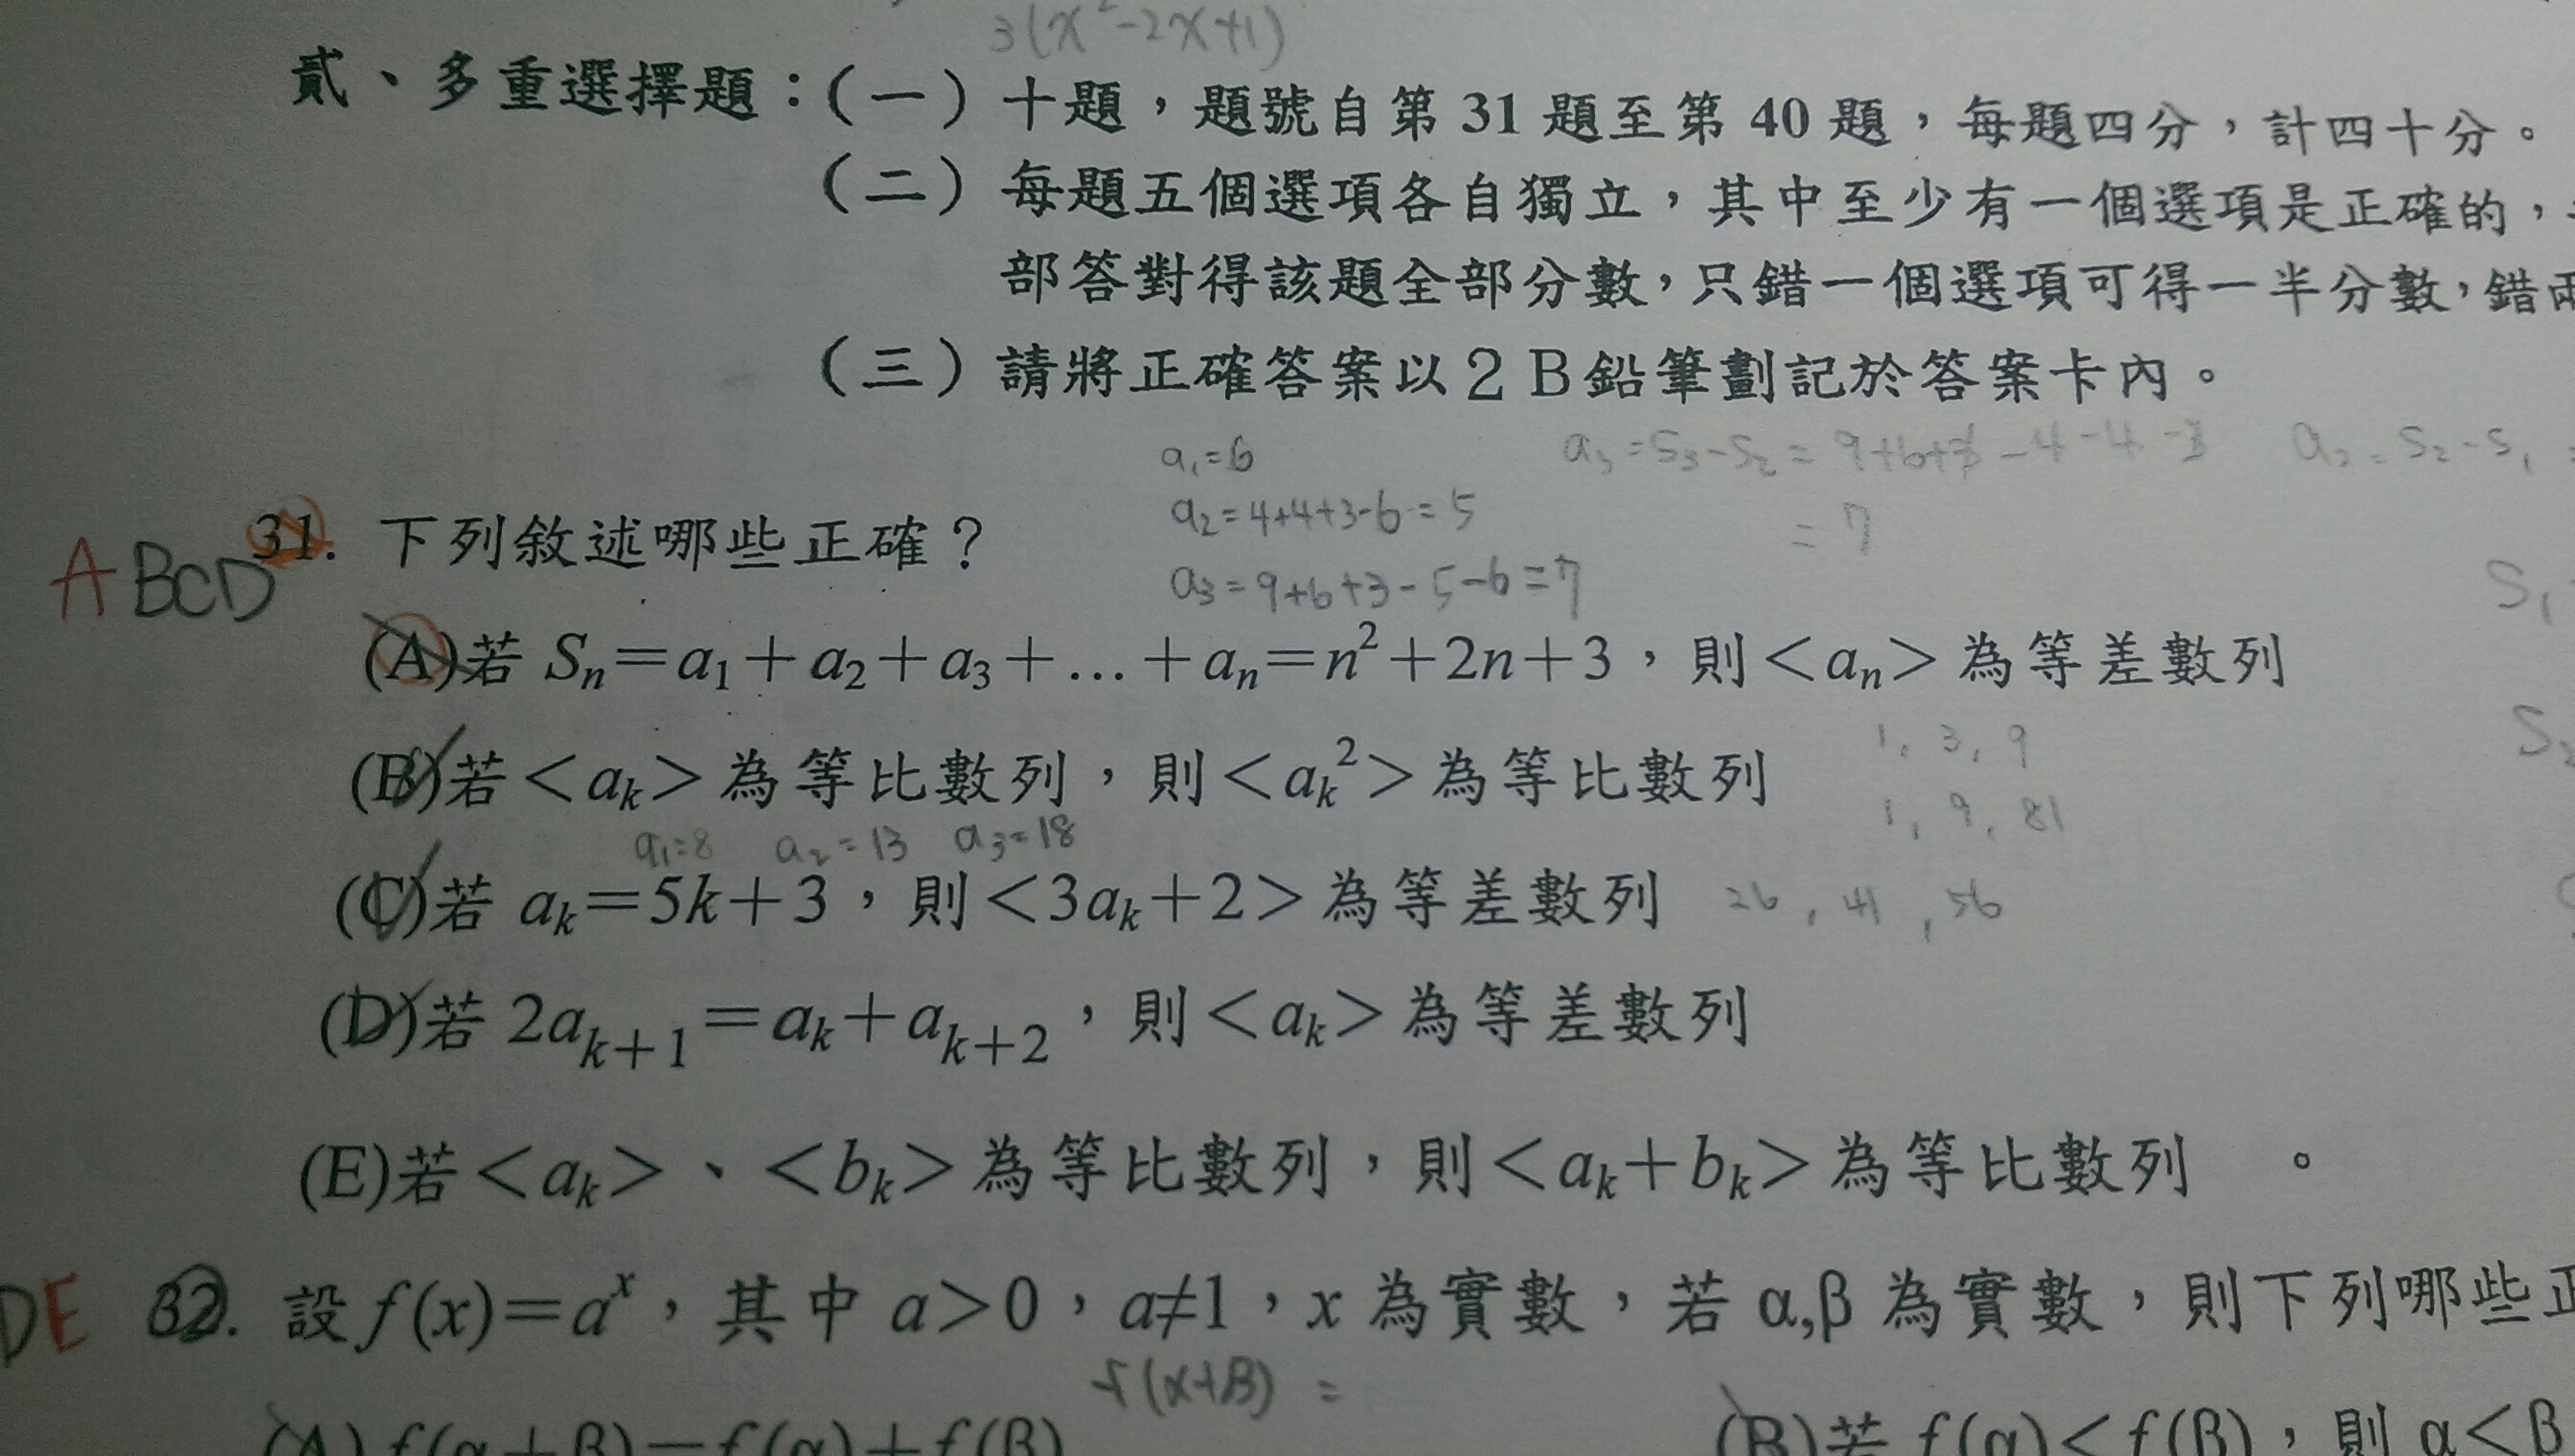 3(x²-2x+1)
貳、多重選擇題：(一) 十題，題號自第 31 題至第 40 題，每題四分，計四十分。
(二) 每題五個選項各自獨立，其中至少有一個選項是正確的，
部答對得該題全部分數，只錯一個選項可得一半分數，錯兩
(三) 請將正確答案以２Ｂ鉛筆劃記於答案卡內。
a₁=6
a₃=S₃-S₂=9+6+3-4-4-3 a₂=S₂-S₁
a₂=4+4+3-6=5
=7
ABCD 31. 下列敘述哪些正確？
a₃=9+6+3-5-6=7
S₁
(A)若 Sₙ=a₁+a₂+a₃+…+aₙ=n²+2n+3，則<aₙ>為等差數列
1, 3, 9
S₂
(B)若<aₖ>為等比數列，則<aₖ²>為等比數列
1, 9, 81
a₁=8 a₂=13 a₃=18
(C)若 aₖ=5k+3，則<3aₖ+2>為等差數列 26, 41, 56
(D)若 2aₖ₊₁=aₖ+aₖ₊₂，則<aₖ>為等差數列
(E)若<aₖ>、<bₖ>為等比數列，則<aₖ+bₖ>為等比數列 。
DE 32. 設 f(x)=aˣ，其中 a>0，a≠1，x 為實數，若 α,β 為實數，則下列哪些正
f(x+β) =
(A) f(α+β)=f(α)+f(β) (B)若 f(α)<f(β)，則 α<β